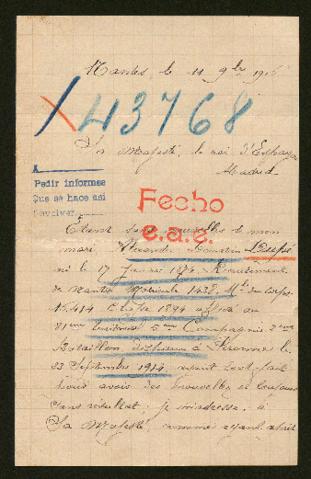 Nantes, le 11 9bre 1916
43768
Sa Majesté, le roi d'Espagne
Madrid
Pedir informes
Que se hace así
Devolver
Fecho
e.a.e.
Étant sans nouvelle de mon
mari Alexandre
né le 17 Janvier 1874. Recrutement
de Nantes Matricule 1438. Mle du corps
15.414 Classe 1894 affecté au
81ème territorial 5ème Compagnie 2ème
Bataillon à le
23 Septembre 1914 ayant tout fait
pour avoir des nouvelles et toujours
sans résultat; je m'adresse à
Sa Majesté, comme ayant